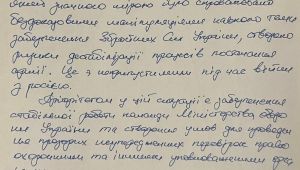 дней значною мірою було спровоковано
бездоказовими маніпуляціями навколо теми
забезпечення Збройних Сил України, створено
ризики дестабілізації процесів постачання
армії. Це є неприпустимим під час війни
з росією.
Пріоритетом у цій ситуації є забезпечення
стабільної роботи команди Міністерства оборо-
ни України та створення умов для проведен-
ня прозорих неупереджених перевірок право-
охоронними та іншими уповноваженими орга-